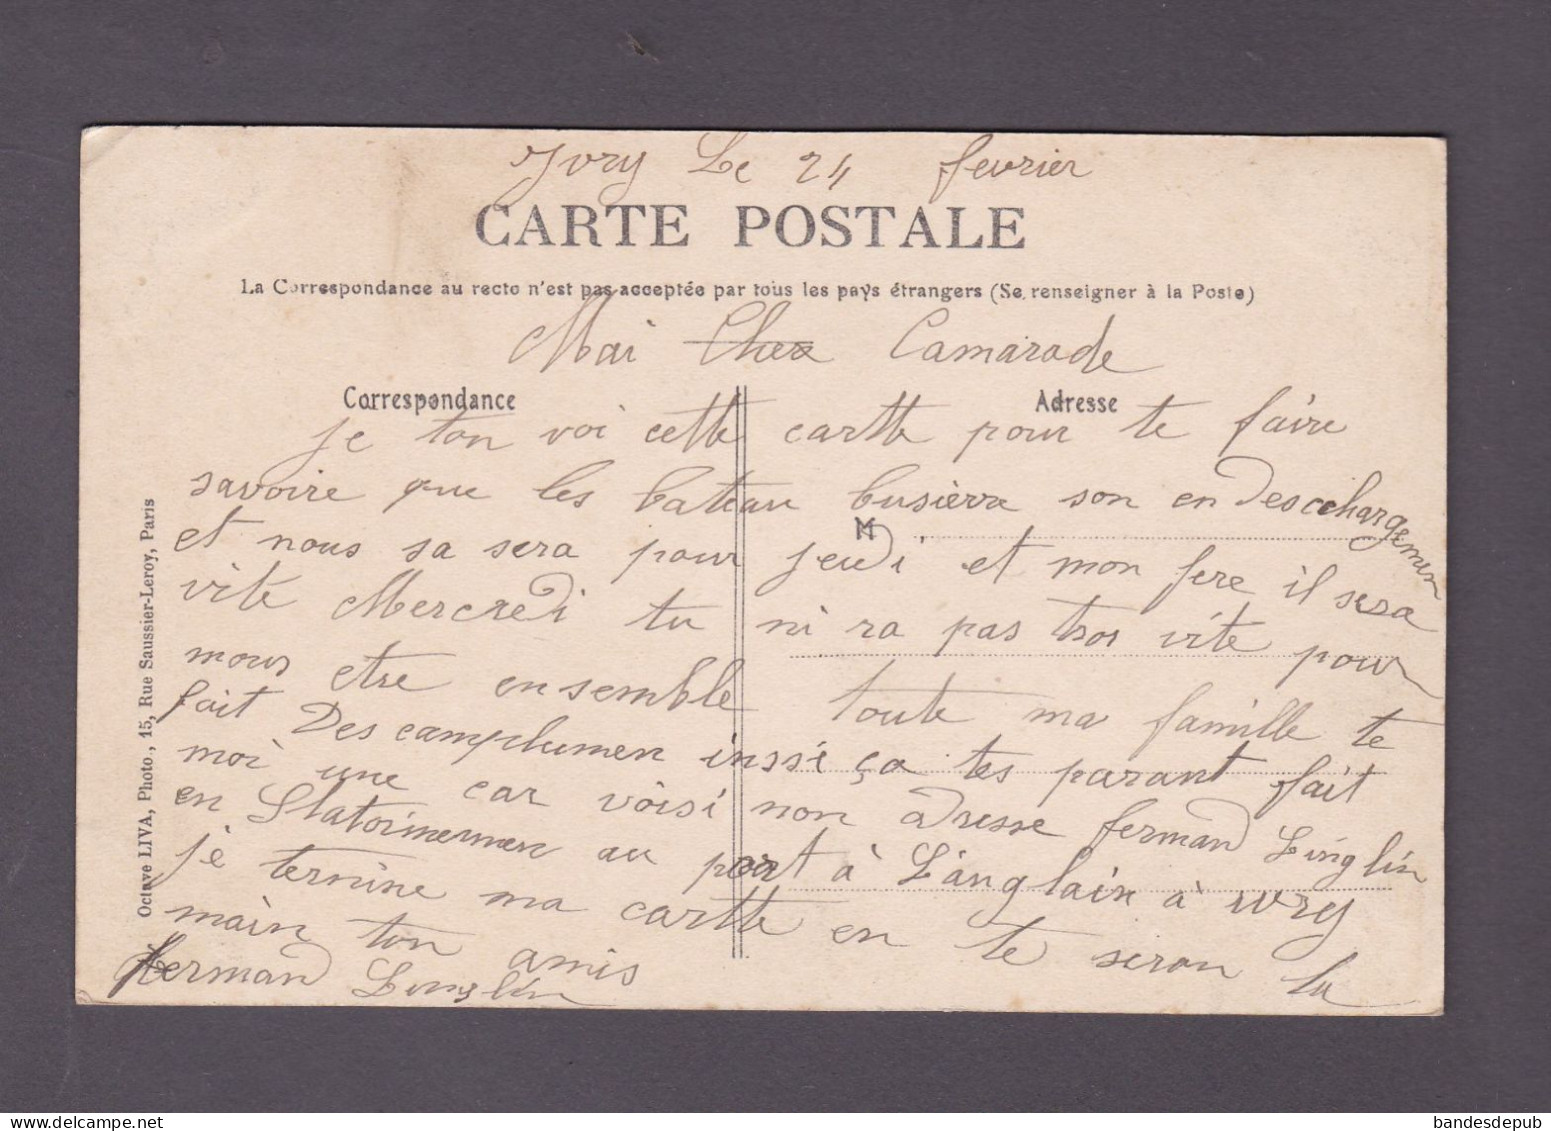 Ivry Le 24 fevrier
CARTE POSTALE
La Correspondance au recto n'est pas acceptée par tous les pays étrangers (Se renseigner à la Poste)
Mai Cher Camarade
Correspondance
Adresse
je ton voi cette cartte pour te faire
savoire que les bateau busièra son en Descchargemen
M
et nous sa sera pour jeudi et mon fere il sera
vite Mercredi tu ni ra pas tros vite pour
nous etre ensemble toute ma famille te
fait Des camplumen inssi ça tes parant fait
moi une car voisi non adresse fermand Linglin
en Statoinnemen au port à Langlain à ivry
je termine ma cartte en te seran la
main ton amis
fermand Linglin
Octave LIVA, Photo., 15, Rue Saussier-Leroy, Paris
bandesdepub